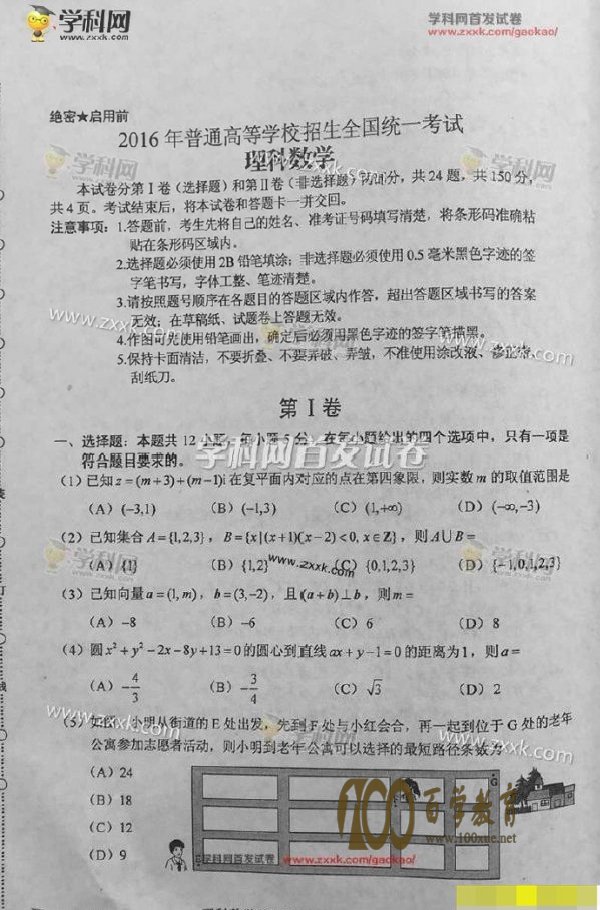 学科网
www.zxxk.com
学科网首发试卷
www.zxxk.com/gaokao/
绝密★启用前
2016年普通高等学校招生全国统一考试
理科数学
本试卷分第Ⅰ卷(选择题)和第Ⅱ卷(非选择题)两部分,共24题,共150分,
共4页。考试结束后,将本试卷和答题卡一并交回。
注意事项:1.答题前,考生先将自己的姓名、准考证号码填写清楚,将条形码准确粘
贴在条形码区域内。
2.选择题必须使用2B铅笔填涂;非选择题必须使用0.5毫米黑色字迹的签
字笔书写,字体工整、笔迹清楚。
3.请按照题号顺序在各题目的答题区域内作答,超出答题区域书写的答案
无效;在草稿纸、试题卷上答题无效。
4.作图可先使用铅笔画出,确定后必须用黑色字迹的签字笔描黑。
5.保持卡面清洁,不要折叠、不要弄破、弄皱,不准使用涂改液、修正带、
刮纸刀。
第Ⅰ卷
一、选择题:本题共12小题,每小题5分,在每小题给出的四个选项中,只有一项是
符合题目要求的。
(1)已知z=(m+3)+(m−1)i在复平面内对应的点在第四象限,则实数m的取值范围是
(A)(−3,1) (B)(−1,3) (C)(1,+∞) (D)(−∞,−3)
(2)已知集合A={1,2,3},B={x|(x+1)(x−2)<0,x∈Z},则A∪B=
(A){1} (B){1,2} (C){0,1,2,3} (D){−1,0,1,2,3}
(3)已知向量a=(1,m),b=(3,−2),且(a+b)⊥b,则m=
(A)−8 (B)−6 (C)6 (D)8
(4)圆x²+y²−2x−8y+13=0的圆心到直线ax+y−1=0的距离为1,则a=
(A)−4/3 (B)−3/4 (C)√3 (D)2
(5)如图,小明从街道的E处出发,先到F处与小红会合,再一起到位于G处的老年
公寓参加志愿者活动,则小明到老年公寓可以选择的最短路径条数为
(A)24
(B)18
(C)12
(D)9
G
100百学教育
www.100xue.net
学科网首发试卷 www.zxxk.com/gaokao/